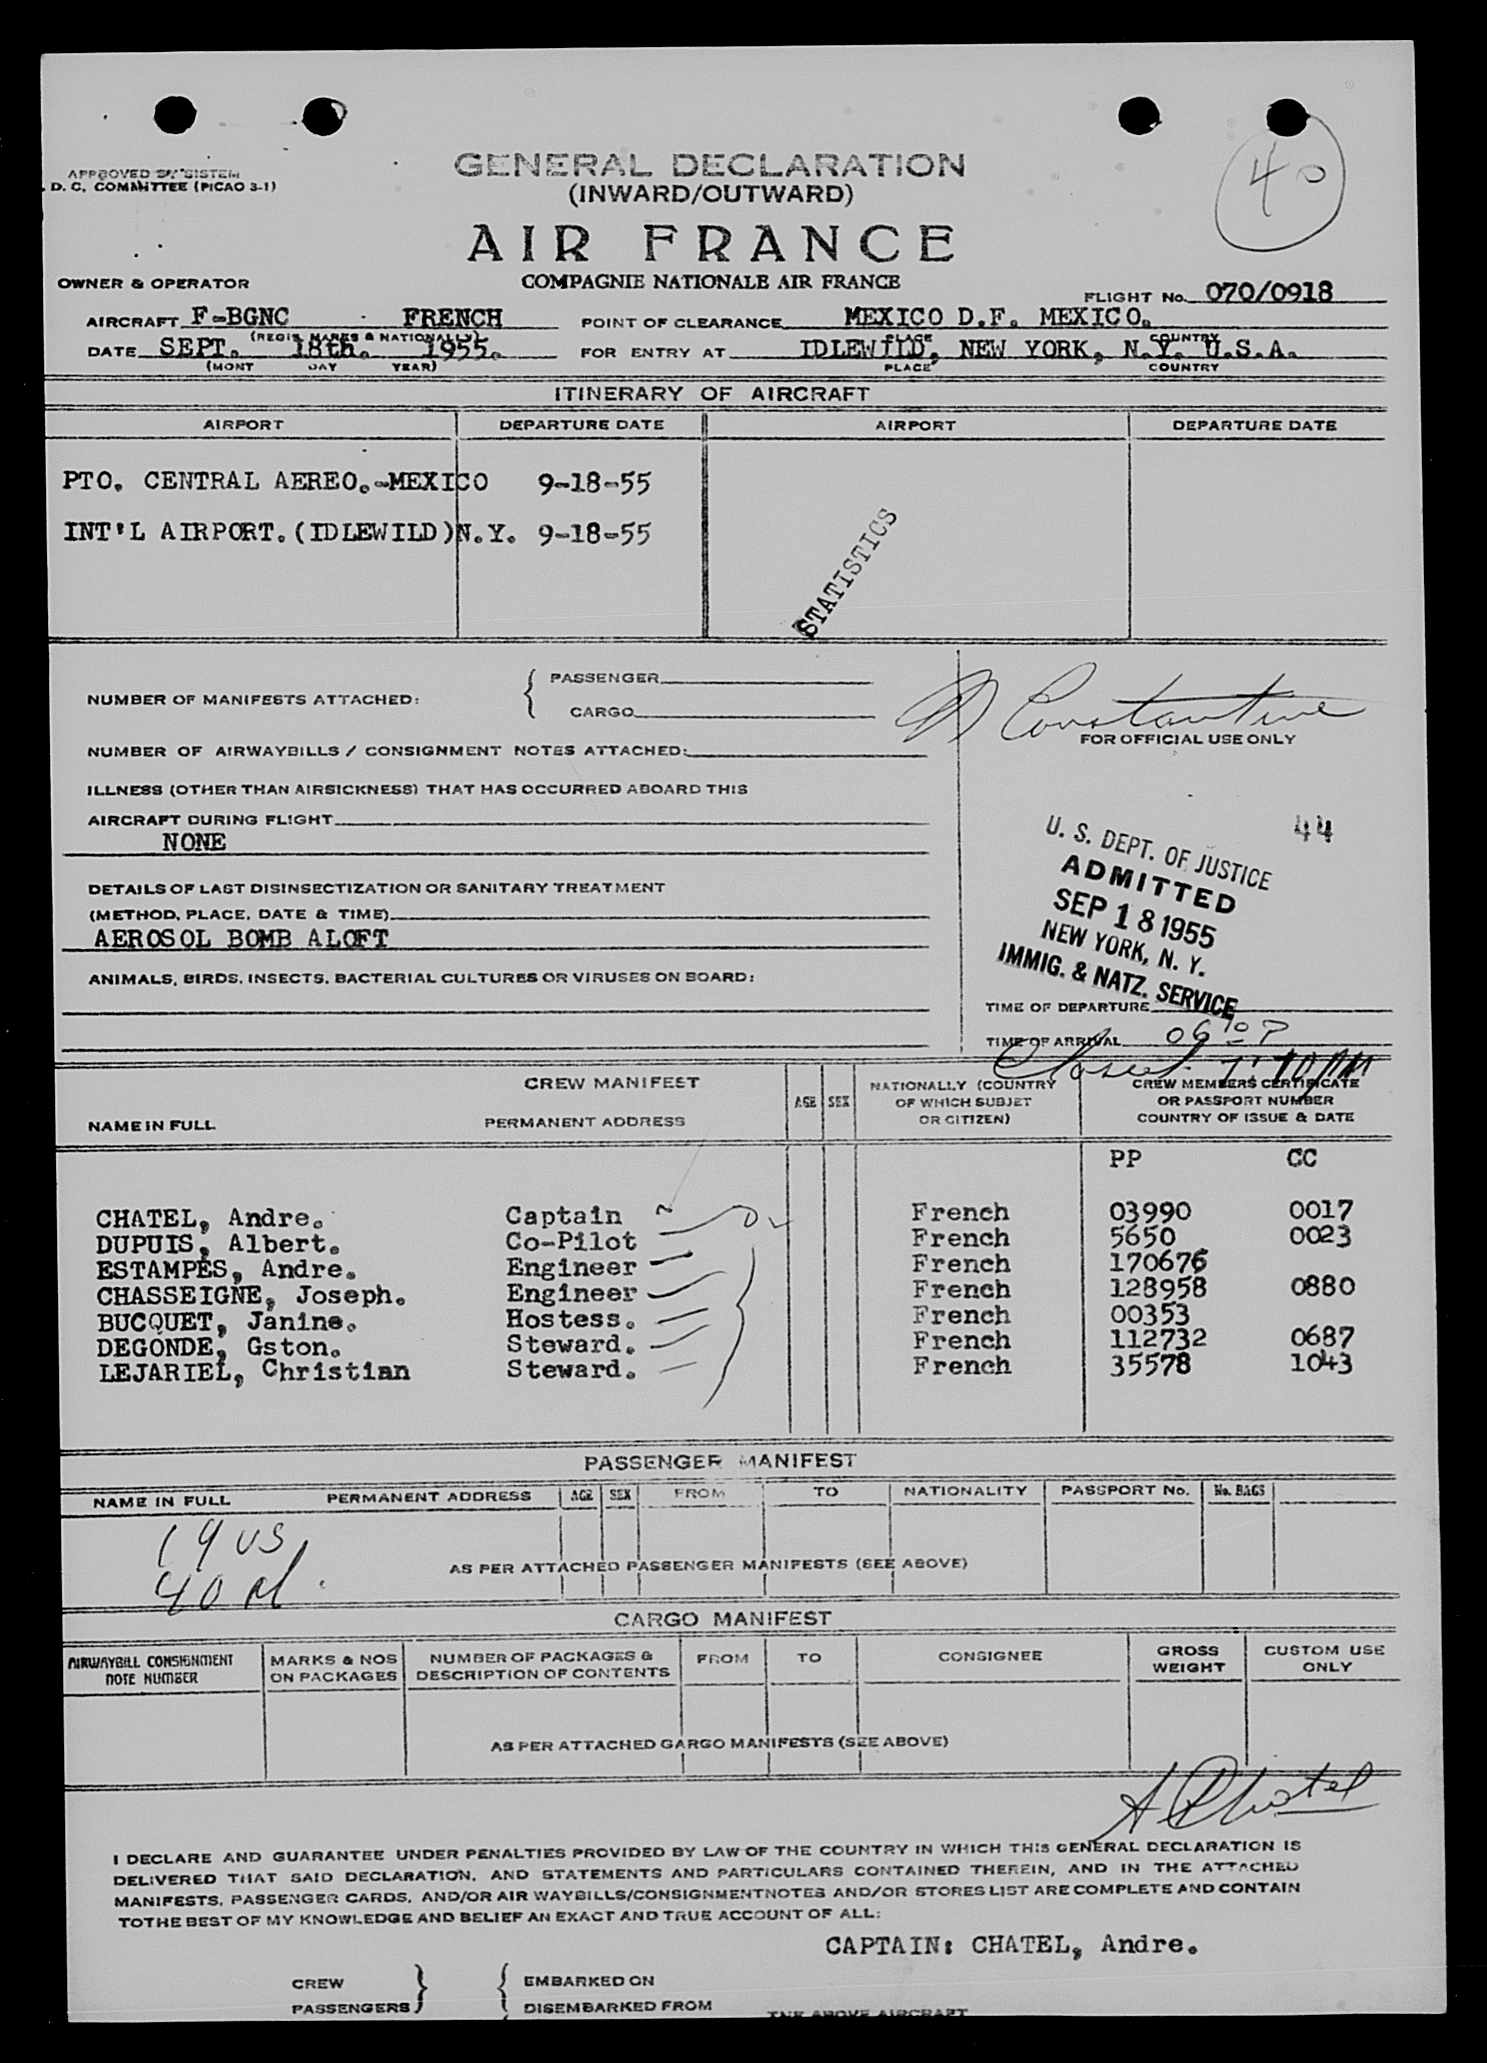 40
APPROVED BY SISTEM
D. C. COMMITTEE (PICAO 3-1)
GENERAL DECLARATION
(INWARD/OUTWARD)
AIR FRANCE
OWNER & OPERATOR
COMPAGNIE NATIONALE AIR FRANCE
FLIGHT No. 070/0918
AIRCRAFT F-BGNC FRENCH POINT OF CLEARANCE MEXICO D.F. MEXICO.
(REGIS. MARKS & NATIONALLY) PLACE COUNTRY
DATE SEPT. 18th. 1955. FOR ENTRY AT IDLEWILD, NEW YORK, N.Y. U.S.A.
(MONT DAY YEAR) PLACE COUNTRY
ITINERARY OF AIRCRAFT
AIRPORT DEPARTURE DATE AIRPORT DEPARTURE DATE
PTO. CENTRAL AEREO.-MEXICO 9-18-55
INT'L AIRPORT.(IDLEWILD)N.Y. 9-18-55
STATISTICS
NUMBER OF MANIFESTS ATTACHED:
PASSENGER
CARGO
Constantine
FOR OFFICIAL USE ONLY
NUMBER OF AIRWAYBILLS / CONSIGNMENT NOTES ATTACHED:
ILLNESS (OTHER THAN AIRSICKNESS) THAT HAS OCCURRED ABOARD THIS
AIRCRAFT DURING FLIGHT
NONE
44
U. S. DEPT. OF JUSTICE
ADMITTED
SEP 18 1955
NEW YORK, N. Y.
IMMIG. & NATZ. SERVICE
DETAILS OF LAST DISINSECTIZATION OR SANITARY TREATMENT
(METHOD, PLACE, DATE & TIME)
AEROSOL BOMB ALOFT
ANIMALS, BIRDS, INSECTS, BACTERIAL CULTURES OR VIRUSES ON BOARD:
TIME OF DEPARTURE
TIME OF ARRIVAL 0610 P
Closed 7:10 PM
CREW MANIFEST
NAME IN FULL PERMANENT ADDRESS AGE SEX
NATIONALLY (COUNTRY
OF WHICH SUBJET
OR CITIZEN)
CREW MEMBERS CERTIFICATE
OR PASSPORT NUMBER
COUNTRY OF ISSUE & DATE
PP CC
CHATEL, Andre. Captain French 03990 0017
DUPUIS, Albert. Co-Pilot French 5650 0023
ESTAMPES, Andre. Engineer French 170676
CHASSEIGNE, Joseph. Engineer French 128958 0880
BUCQUET, Janine. Hostess. French 00353
DEGONDE, Gston. Steward. French 112732 0687
LEJARIEL, Christian Steward. French 35578 1043
PASSENGER MANIFEST
NAME IN FULL PERMANENT ADDRESS AGE SEX FROM TO NATIONALITY PASSPORT No. No. BAGS
19 US
40 al
AS PER ATTACHED PASSENGER MANIFESTS (SEE ABOVE)
CARGO MANIFEST
AIRWAYBILL CONSIGNMENT
NOTE NUMBER
MARKS & NOS
ON PACKAGES
NUMBER OF PACKAGES &
DESCRIPTION OF CONTENTS
FROM TO CONSIGNEE
GROSS
WEIGHT
CUSTOM USE
ONLY
AS PER ATTACHED CARGO MANIFESTS (SEE ABOVE)
A Chatel
I DECLARE AND GUARANTEE UNDER PENALTIES PROVIDED BY LAW OF THE COUNTRY IN WHICH THIS GENERAL DECLARATION IS
DELIVERED THAT SAID DECLARATION, AND STATEMENTS AND PARTICULARS CONTAINED THEREIN, AND IN THE ATTACHED
MANIFESTS, PASSENGER CARDS, AND/OR AIR WAYBILLS/CONSIGNMENTNOTES AND/OR STORES LIST ARE COMPLETE AND CONTAIN
TOTHE BEST OF MY KNOWLEDGE AND BELIEF AN EXACT AND TRUE ACCOUNT OF ALL:
CAPTAIN: CHATEL, Andre.
CREW
PASSENGERS
EMBARKED ON
DISEMBARKED FROM
THE ABOVE AIRCRAFT